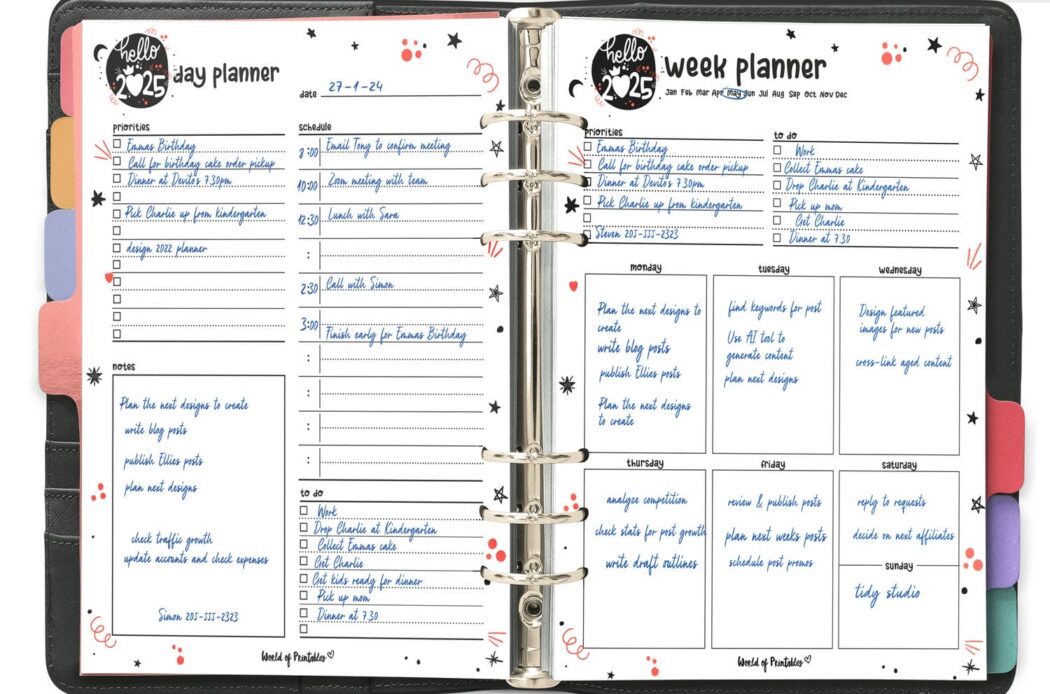 hello
2025
day planner
date 27-1-24
priorities
Emmas Birthday
Call for birthday cake order pickup
Dinner at Devito's 7.30pm
Pick Charlie up from kindergarten
design 2022 planner
notes
Plan the next designs to create
write blog posts
publish Ellies posts
plan next designs
check traffic growth
update accounts and check expenses
Simon 205-555-2323
schedule
8:00 Email Tony to confirm meeting
10:00 Zoom meeting with team
12:30 Lunch with Sara
:
2:30 Call with Simon
3:00 Finish early for Emmas Birthday
:
:
:
:
to do
Work
Drop Charlie at Kindergarten
Collect Emmas cake
Get Charlie
Get kids ready for dinner
Pick up mom
Dinner at 7.30
World of Printables
hello
2025
week planner
Jan Feb Mar Apr May Jun Jul Aug Sep Oct Nov Dec
priorities
Emmas Birthday
Call for birthday cake order pickup
Dinner at Devito's 7.30pm
Pick Charlie up from kindergarten
Steven 205-555-2323
to do
Work
Collect Emmas cake
Drop Charlie at Kindergarten
Pick up mom
Get Charlie
Dinner at 7.30
monday
Plan the next designs to
create
write blog posts
publish Ellies posts
Plan the next designs
to create
tuesday
find keywords for post
Use AI tool to
generate content
plan next designs
wednesday
Design featured
images for new posts
cross-link aged content
thursday
analyze competition
check stats for post growth
write draft outlines
friday
review & publish posts
plan next weeks posts
schedule post promos
saturday
reply to requests
decide on next affiliates
sunday
tidy studio
World of Printables